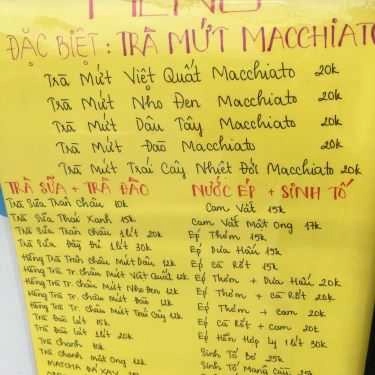 MENU
ĐẶC BIỆT : TRÀ MỨT MACCHIATO
Trà Mứt Việt Quất Macchiato 20k
Trà Mứt Nho Đen Macchiato 20k
Trà Mứt Dâu Tây Macchiato 20k
Trà Mứt Đào Macchiato 20k
Trà Mứt Trái Cây Nhiệt Đới Macchiato 20k
TRÀ SỮA + TRÀ ĐÀO
Trà Sữa Trân Châu 10k
Trà Sữa Thái Xanh 15k
Trà Sữa Trân Châu 1 lít 20k
Trà Sữa Đầy Đủ 1 lít 30k
Hồng Trà Trân Châu Mứt Dâu 12k
Hồng Trà Tr. Châu Mứt Việt Quất 12k
Hồng Trà Tr. Châu Mứt Nho Đen 12k
Hồng Trà Tr. Châu Mứt Đào 12k
Hồng Trà Tr. Châu Mứt Trái Cây 12k
Trà Đào lít 15k
Trà Đào 1 lít 20k
Trà chanh 10k
Trà chanh mật Ong 12k
MATCHA ĐÁ XAY
NƯỚC ÉP + SINH TỐ
Cam Vắt 15k
Cam Vắt Mật Ong 17k
Ép Thơm 15k
Ép Dưa Hấu 15k
Ép Cà Rốt 15k
Ép Thơm + Dưa Hấu 20k
Ép Thơm + Cà Rốt 20k
Ép Thơm + Cam 20k
Ép Cà Rốt + Cam 20k
Ép Hỗn Hợp 1 lít 30k
Sinh Tố Bơ 25k
Sinh Tố Mãng Cầu 25k